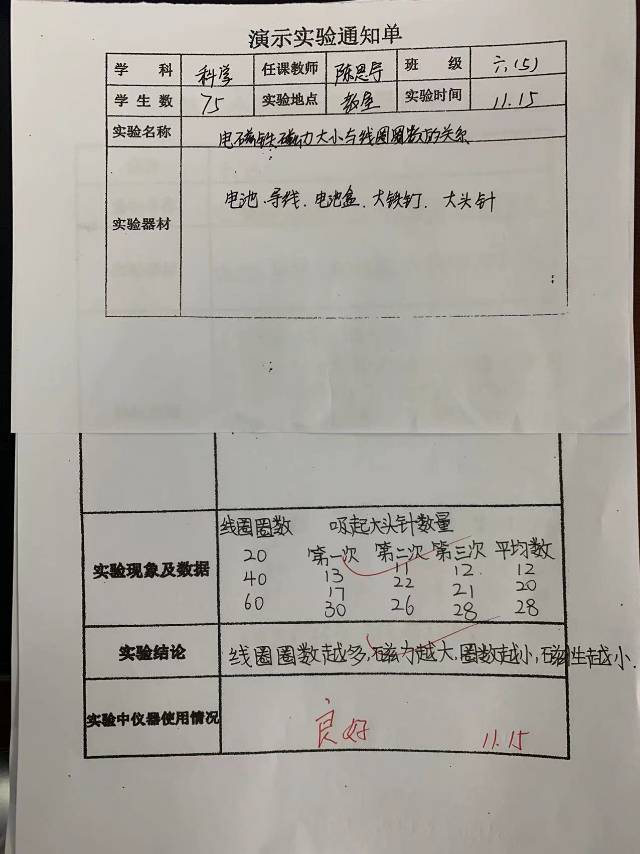 演示实验通知单
学 科 科学 任课教师 陈思导 班 级 六.(5)
学生数 75 实验地点 教室 实验时间 11.15
实验名称 电磁铁磁力大小与线圈圈数的关系
实验器材 电池.导线.电池盒.大铁钉.大头针
线圈圈数 吸起大头针数量
20 第一次 第二次 第三次 平均数
实验现象及数据
40 13 11 12. 12
17 22 21 20
60 30 26 28 28
实验结论 线圈圈数越多,磁力越大,圈数越小,磁性越小.
实验中仪器使用情况 良好 11.15